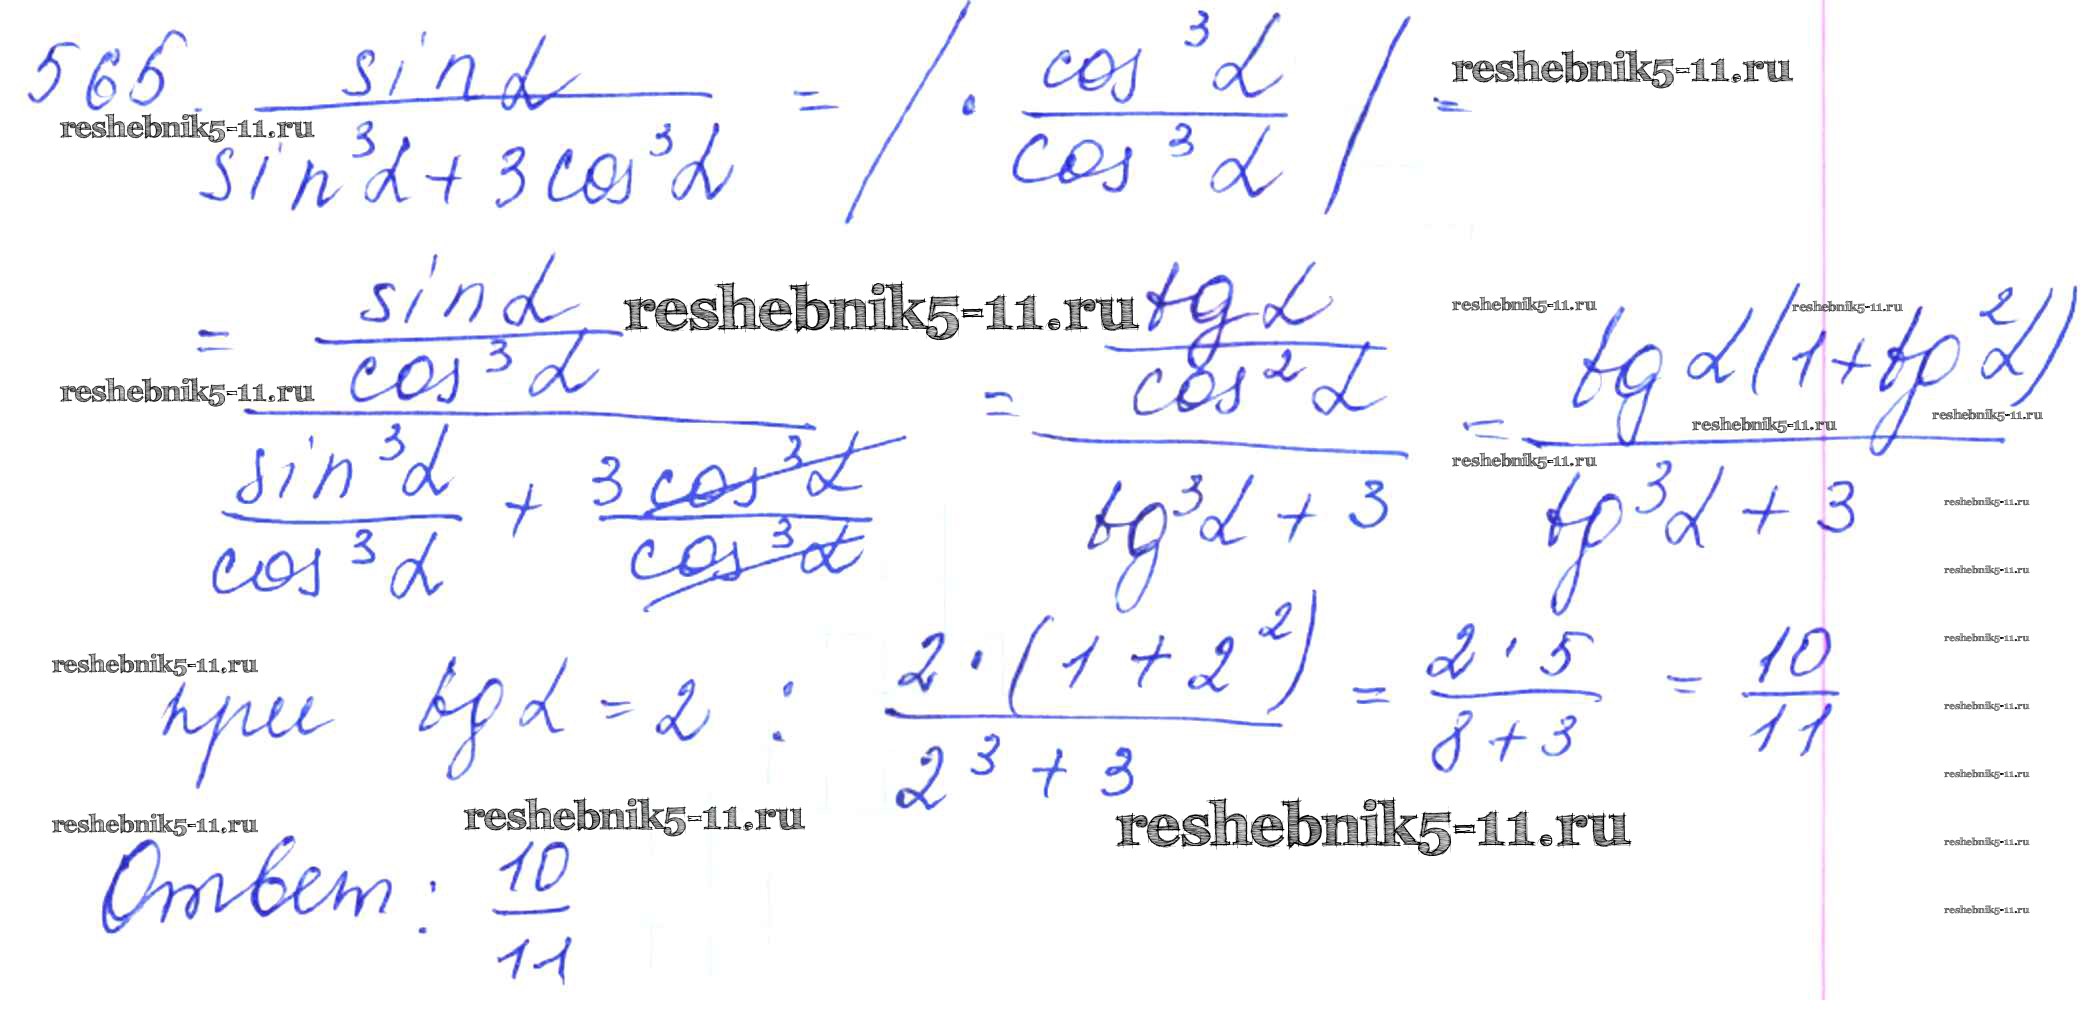 565. sin α / (sin³α + 3cos³α) = / · cos³α / cos³α / =
reshebnik5-11.ru
reshebnik5-11.ru
= (sin α / cos³α) / (sin³α / cos³α + 3cos³α / cos³α) = (tg α / cos²α) / (tg³α + 3) = tg α(1 + tg²α) / (tg³α + 3)
reshebnik5-11.ru
reshebnik5-11.ru
reshebnik5-11.ru
reshebnik5-11.ru
reshebnik5-11.ru
reshebnik5-11.ru
reshebnik5-11.ru
reshebnik5-11.ru
reshebnik5-11.ru
reshebnik5-11.ru
при tg α = 2 : 2 · (1 + 2²) / (2³ + 3) = 2 · 5 / (8 + 3) = 10 / 11
reshebnik5-11.ru
reshebnik5-11.ru
reshebnik5-11.ru
reshebnik5-11.ru
reshebnik5-11.ru
reshebnik5-11.ru
reshebnik5-11.ru
reshebnik5-11.ru
Ответ: 10 / 11
reshebnik5-11.ru